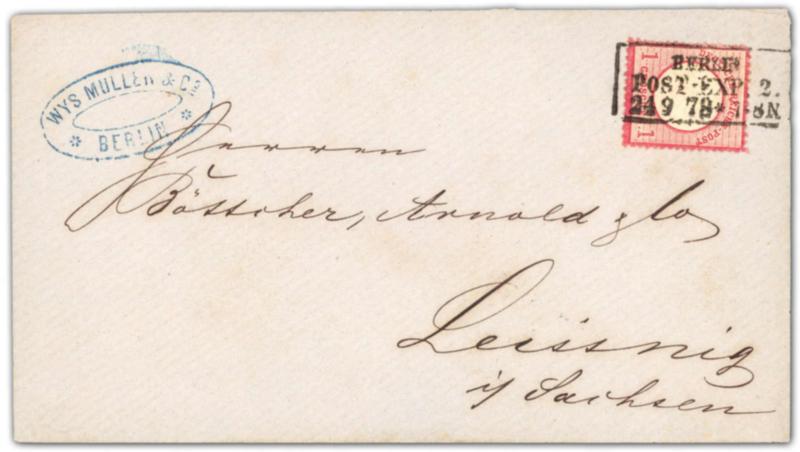 WYS MULLER & Co
* BERLIN *
BERLIN
POST-EXP. 2.
24 9 78 * 7-8N
1 1
POST
Herren
Böttcher, Arnold & Co
Leissnig
i/ Sachsen